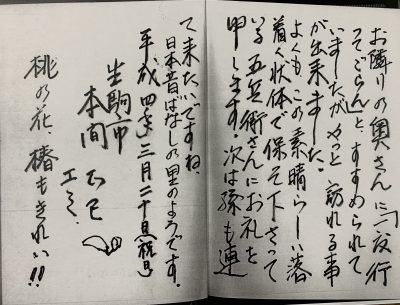 お隣りの奥さんに「一度行
ってごらん」と、すすめられて
いましたがやっと訪れる事
が出来ました。
よくも、この素晴らしい落
着く状態で保って下さって
いる五兵衛さんにお礼を
申します。次は孫も連
て来たいですね。
日本昔ばなしの里のようです。
平成四年三月二十日(祝日)
生駒市
本間
エミ
桃の花、椿もきれい!!